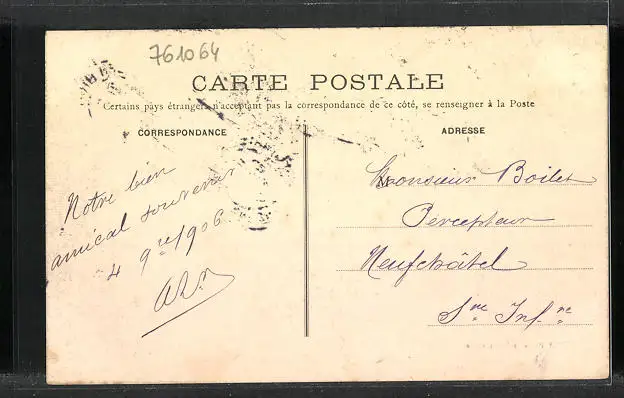 761064
CARTE POSTALE
Certains pays étrangers n'acceptant pas la correspondance de ce côté, se renseigner à la Poste
CORRESPONDANCE
Notre bien
amical souvenir
4 9re 1906
ADRESSE
Monsieur Boilet
Percepteur
Neufchâtel
Sne Infre